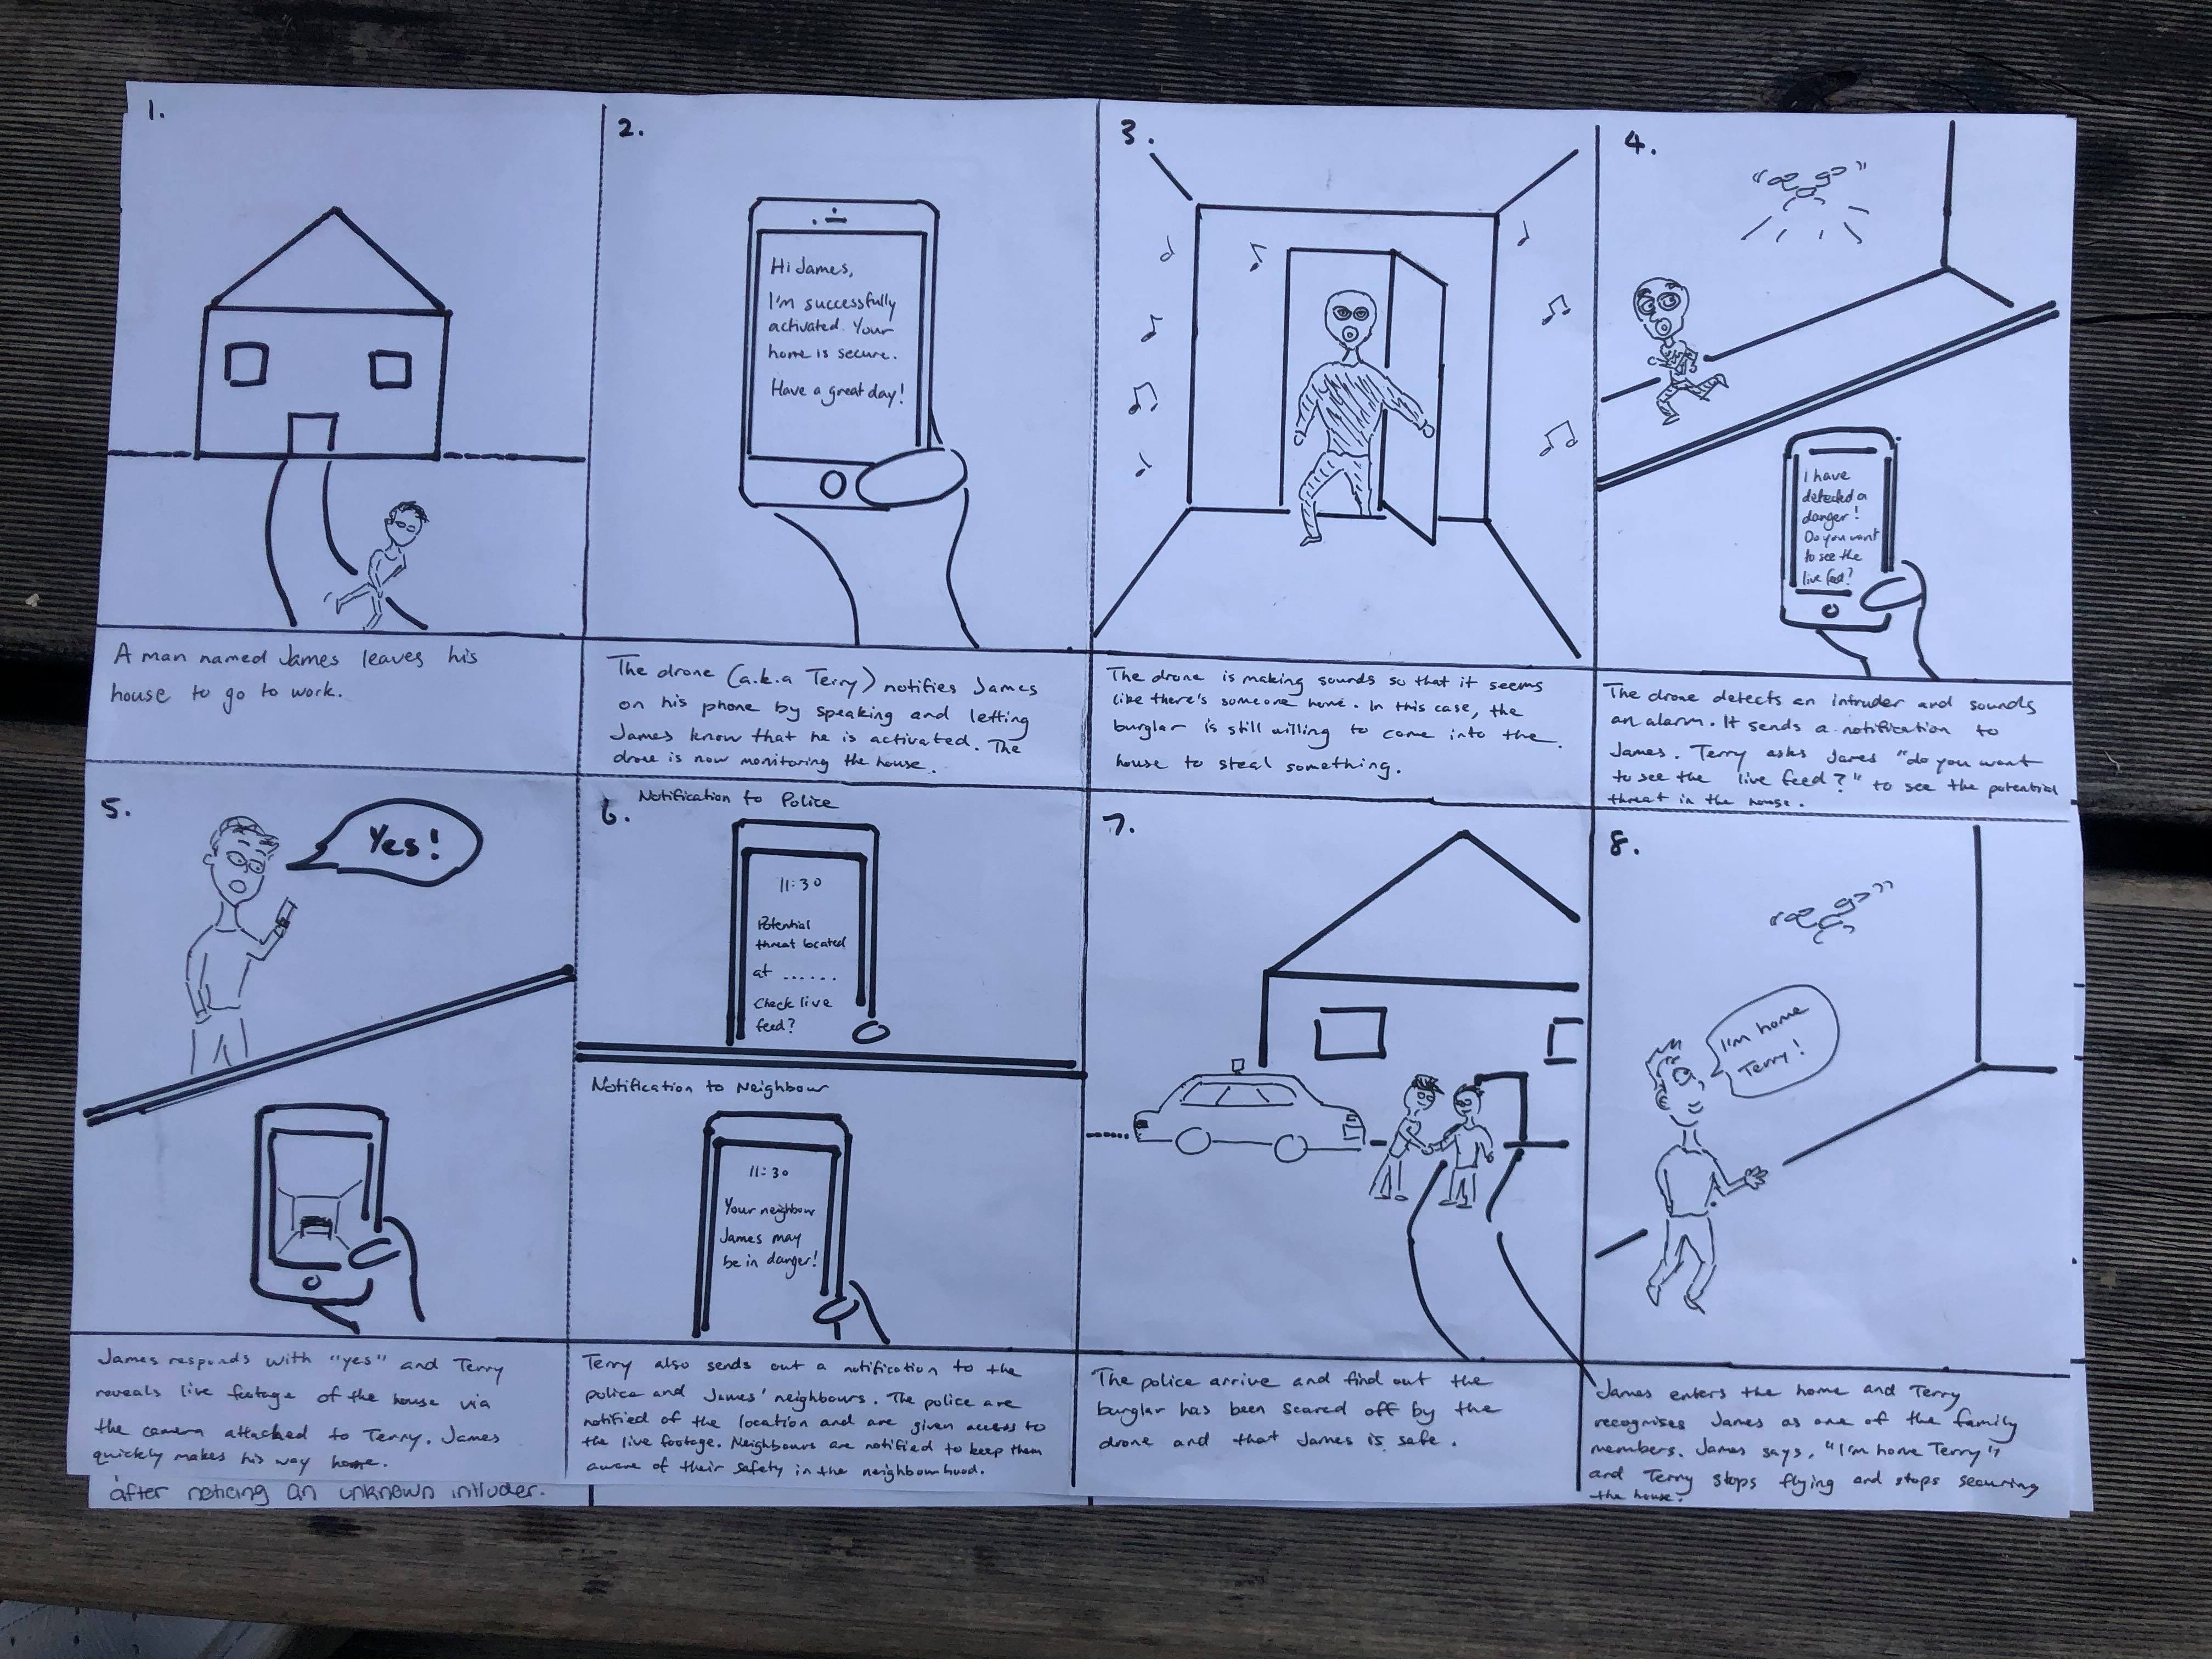 1.
A man named James leaves his
house to go to work.
2.
Hi James,
I'm successfully
activated. Your
home is secure.
Have a great day!
The drone (a.k.a Terry) notifies James
on his phone by speaking and letting
James know that he is activated. The
drone is now monitoring the house.
3.
The drone is making sounds so that it seems
like there's someone home. In this case, the
burglar is still willing to come into the
house to steal something.
4.
I have
detected a
danger!
Do you want
to see the
live feed?
The drone detects an intruder and sounds
an alarm. It sends a notification to
James. Terry asks James "do you want
to see the live feed?" to see the potential
threat in the house.
5.
Yes!
James responds with "yes" and Terry
reveals live footage of the house via
the camera attacked to Terry. James
quickly makes his way home.
after noticing an unknown intruder.
6.
Notification to Police
11:30
Potential
threat located
at ......
Check live
feed?
Notification to Neighbour
11:30
Your neighbour
James may
be in danger!
Terry also sends out a notification to the
police and James' neighbours. The police are
notified of the location and are given access to
the live footage. Neighbours are notified to keep them
aware of their safety in the neighbourhood.
7.
The police arrive and find out the
burglar has been scared off by the
drone and that James is safe.
8.
I'm home
Terry!
James enters the home and Terry
recognises James as one of the family
members. James says, "I'm home Terry"
and Terry stops flying and stops securing
the house.